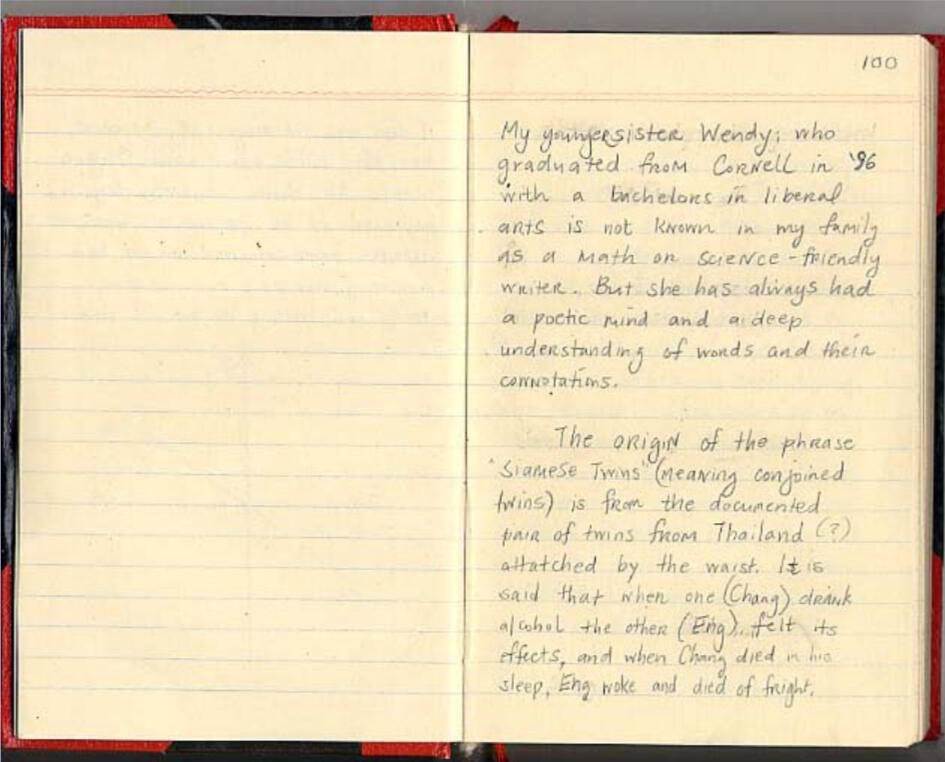 100
My younger sister Wendy, who
graduated from Cornell in '96
with a bachelors in liberal
arts is not known in my family
as a math or science-friendly
writer. But she has always had
a poetic mind and a deep
understanding of words and their
connotations.
The origin of the phrase
"Siamese Twins" (meaning conjoined
twins) is from the documented
pair of twins from Thailand (?)
attatched by the waist. It is
said that when one (Chang) drank
alcohol the other (Eng) felt its
effects, and when Chang died in his
sleep, Eng woke and died of fright.